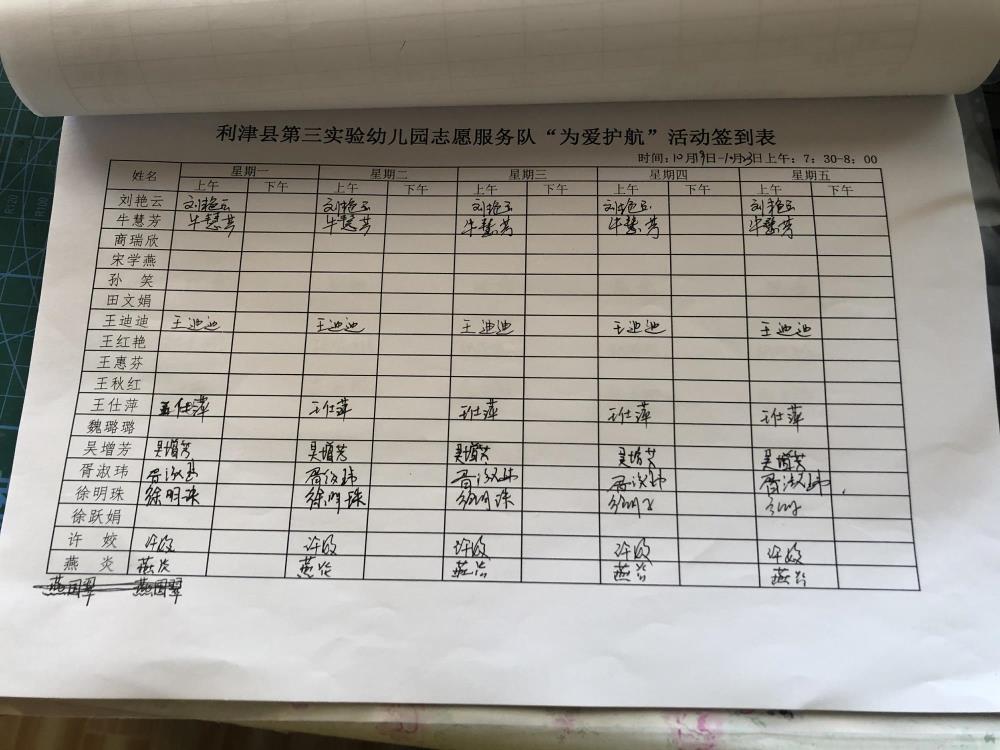 利津县第三实验幼儿园志愿服务队“为爱护航”活动签到表
时间：10月19日-10月23日上午：7：30-8：00
姓名 星期一 星期二 星期三 星期四 星期五
上午 下午 上午 下午 上午 下午 上午 下午 上午 下午
刘艳云 刘艳云 刘艳云 刘艳云 刘艳云 刘艳云
牛慧芳 牛慧芳 牛慧芳 牛慧芳 牛慧芳 牛慧芳
商瑞欣
宋学燕
孙 笑
田文娟
王迪迪 王迪迪 王迪迪 王迪迪 王迪迪 王迪迪
王红艳
王惠芬
王秋红
王仕萍 王仕萍 王仕萍 王仕萍 王仕萍 王仕萍
魏璐璐
吴增芳 吴增芳 吴增芳 吴增芳 吴增芳 吴增芳
胥淑玮 胥淑玮 胥淑玮 胥淑玮 胥淑玮 胥淑玮
徐明珠 徐明珠 徐明珠 徐明珠
徐跃娟
许 姣 许姣 许姣 许姣 许姣 许姣
燕 炎 燕炎 燕炎 燕炎 燕炎 燕炎
燕国翠 燕国翠